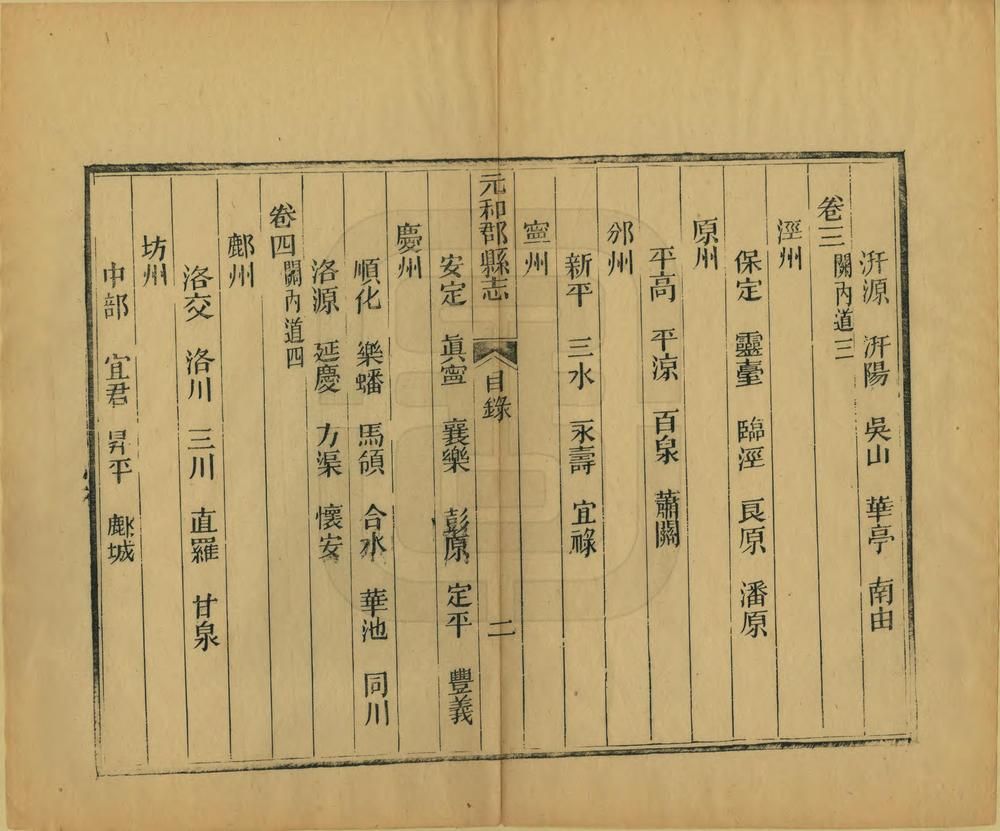 汧源　汧陽　吳山　華亭　南由
卷三關內道三
涇州
保定　靈臺　臨涇　良原　潘原
原州
平高　平涼　百泉　蕭關
邠州
新平　三水　永壽　宜祿
寧州
元和郡縣志　目錄　二
安定　真寧　襄樂　彭原　定平　豐義
慶州
順化　樂蟠　馬領　合水　華池　同川
洛源　延慶　方渠　懷安
卷四關內道四
鄜州
洛交　洛川　三川　直羅　甘泉
坊州
中部　宜君　昇平　鄜城